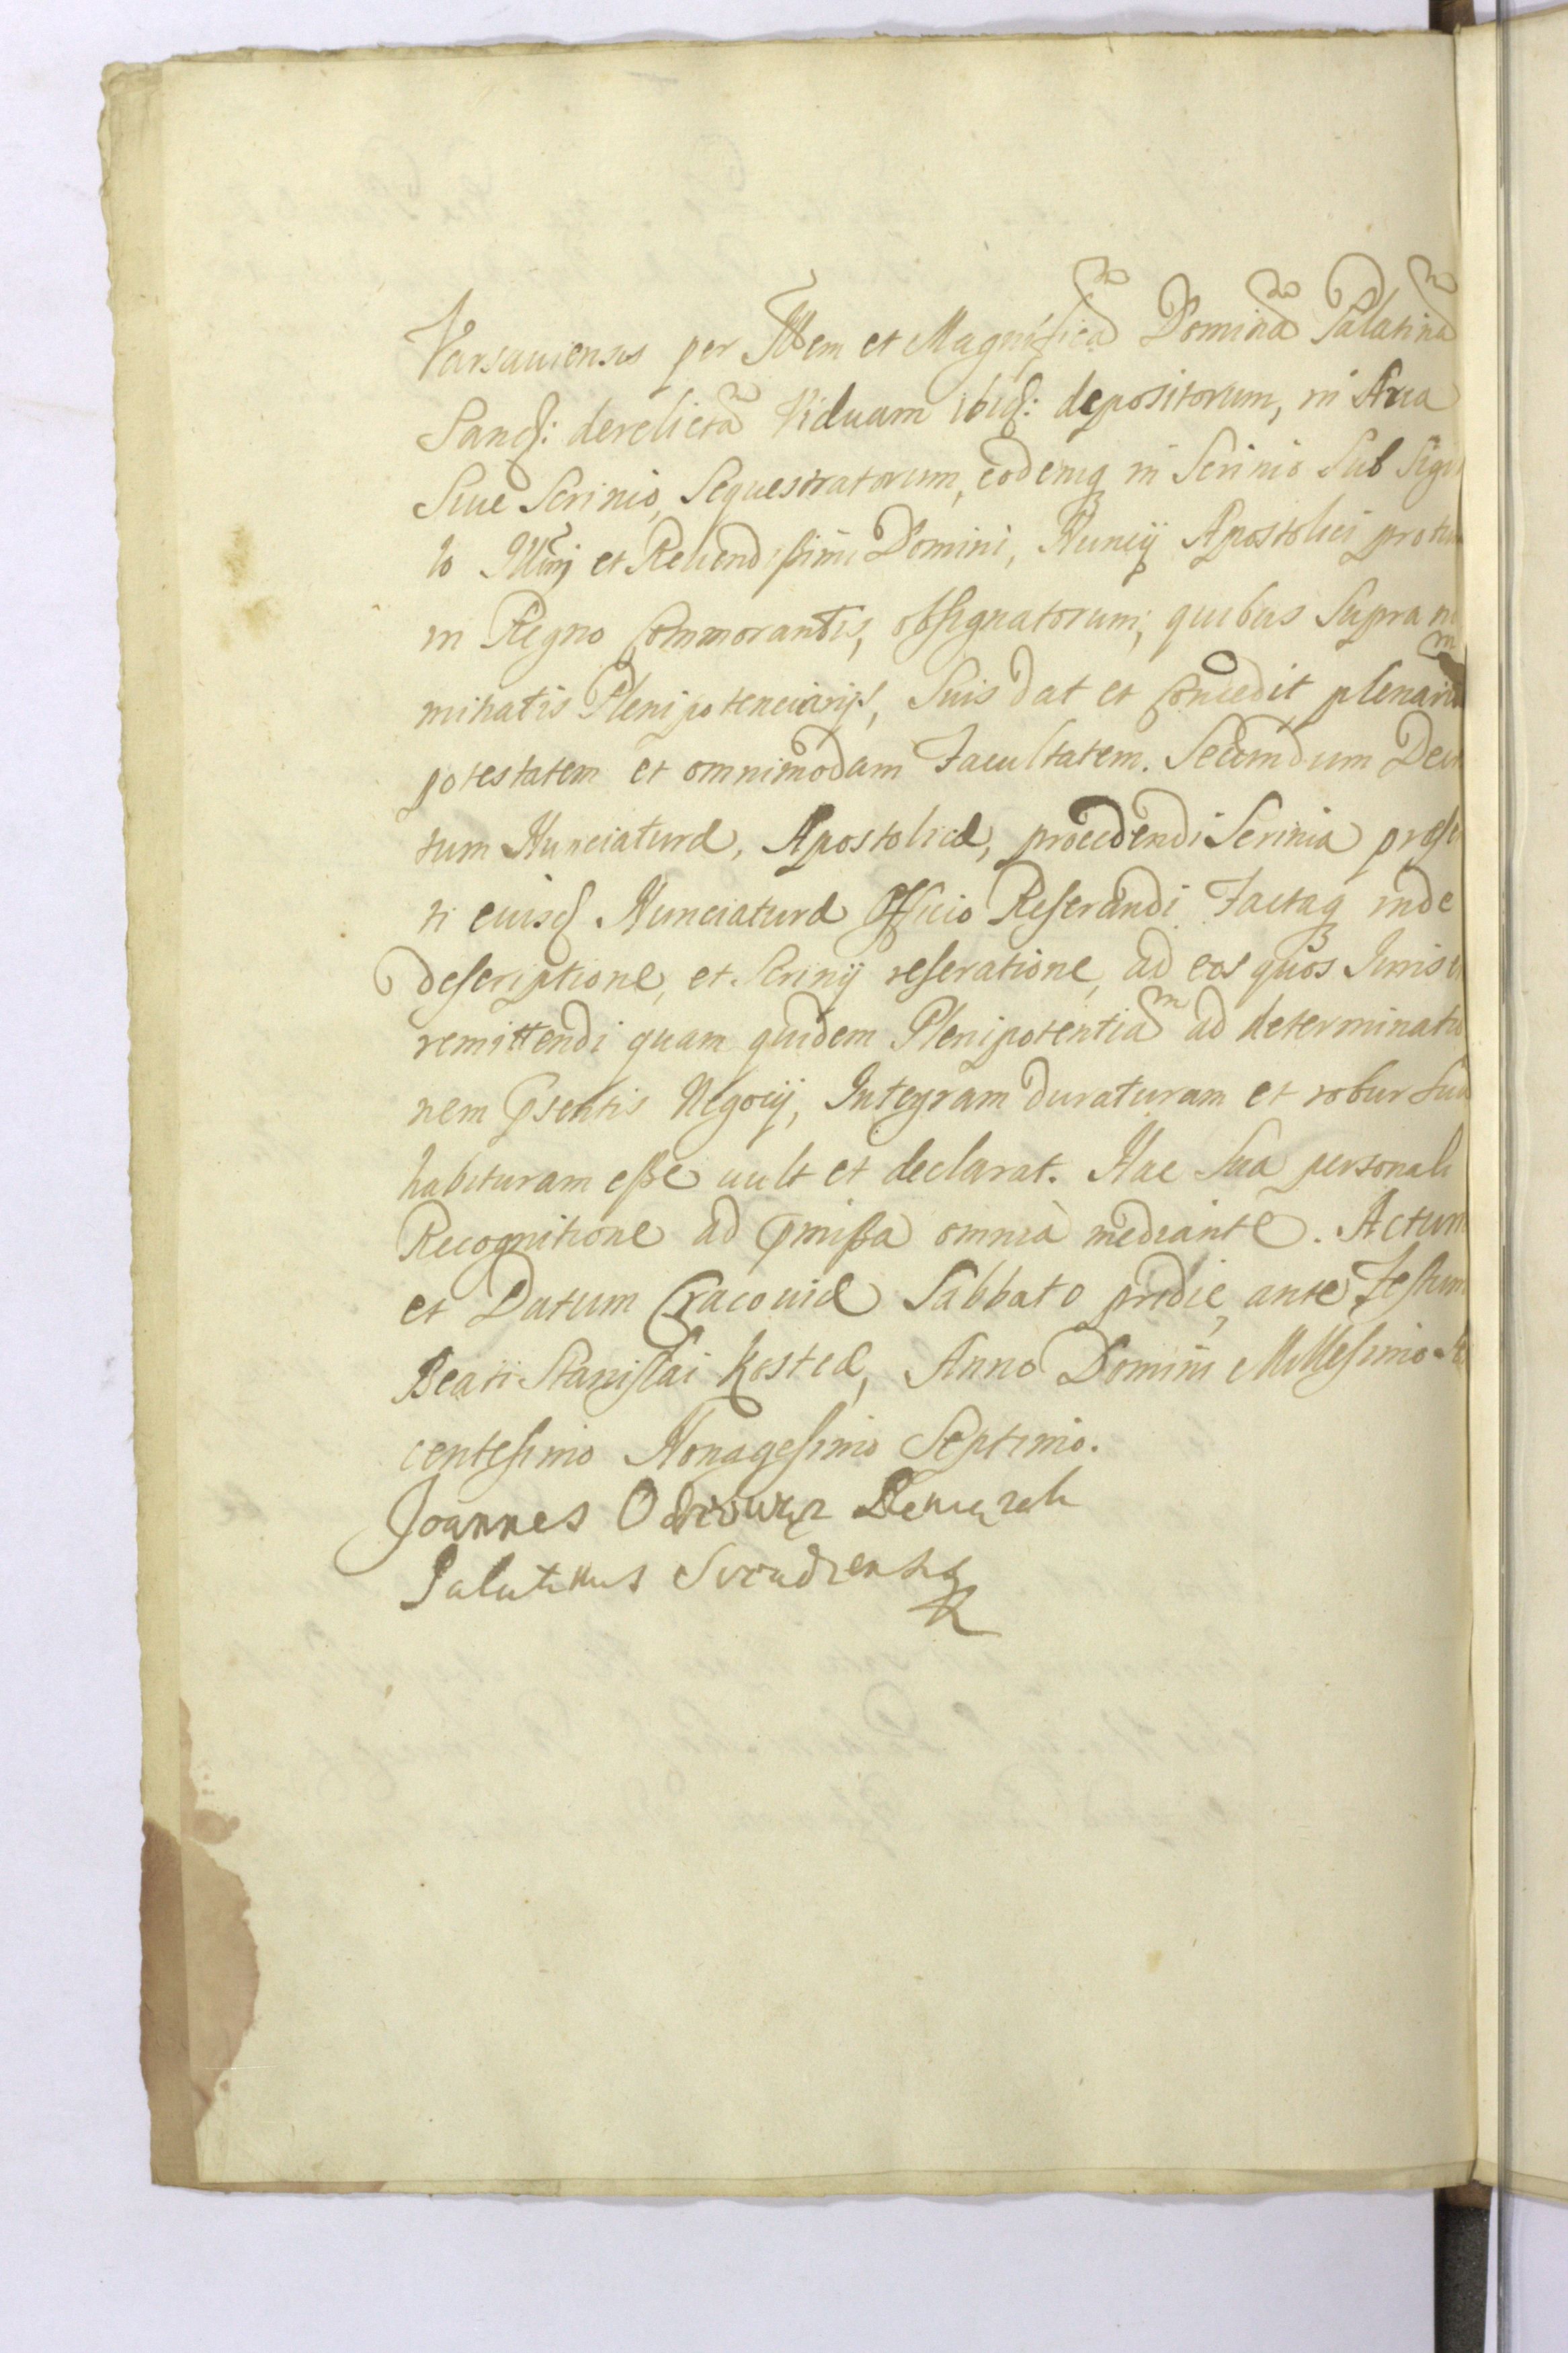 Varsauiensis per Illem et Magnificam Dominam Palatinam
Sand: derelictam Viduam ibid: depositorum, in Arca
Siue Scrinio, Sequestratorum, eodemq in Scrinio Sub Sigil
lo Illmi et Reuendissimi Domini, Nuncij Apostolici pro tu
in Regno Commorantis, obsignatorum; quibus Supra no
minatis Plenipotenciarijs, Suis dat et Concedit plenariam
potestatem et omnimodam Facultatem. Secundum Decre
tum Nunciaturæ, Apostolicæ, procedendi Scrinia præsen
ti euisd Nunciaturæ Officio Reserandi Factaq inde
descriptione, et Scrinij reseratione, ad eos quos Iuris
remittendi quam quidem Plenipotentiam ad determinatio
nem psentis Negocij, Integram duraturam et robur Suu
habituram esse uult et declarat. Hac Sua personali
Recognitione ad pmissa omnia mediante. Actum
et Datum Cracouiæ Sabbato pridie, ante Festum
Beati Stanislai Kostcæ, Anno Domini Millesimo
centesimo Nonagesimo Septimo.
Joannes Odrowąz Pieniązek
Palatinus Siradiensis